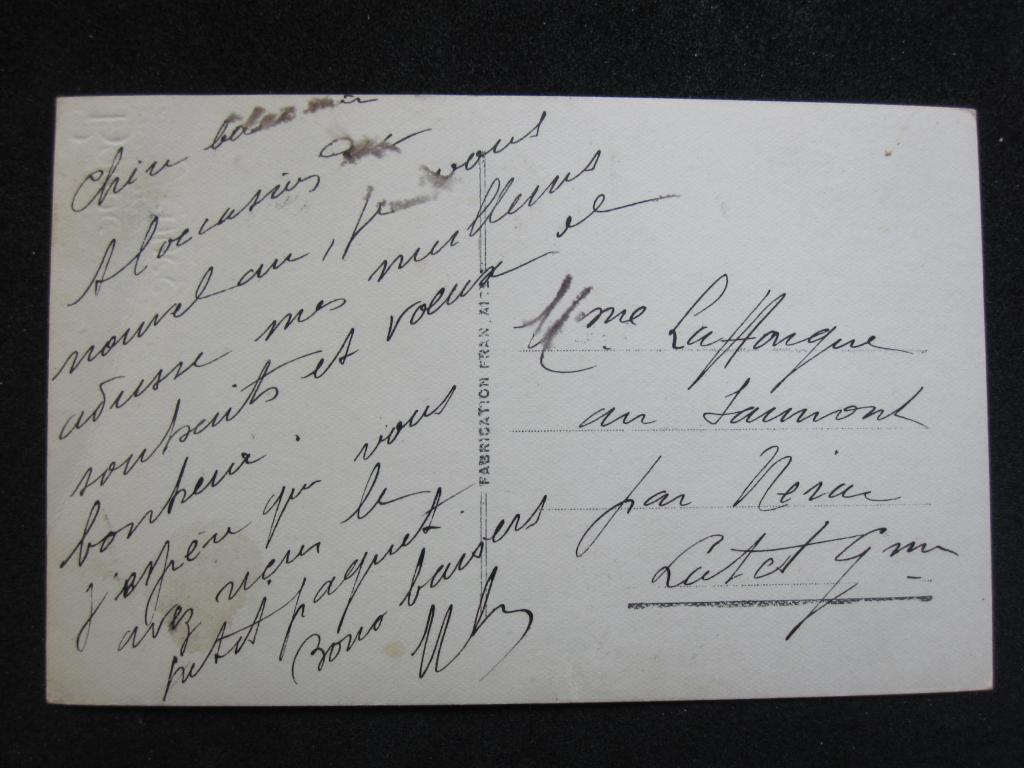 A l'occasion du
nouvel an, je vous
adresse mes meilleurs
souhaits et voeux de
bonheur.
J'espère que vous
avez reçu le
petit paquet.
Bons baisers
FABRICATION FRANÇAISE
Mme Laffongue
au Saumont
par Nérac
Lot et Gne